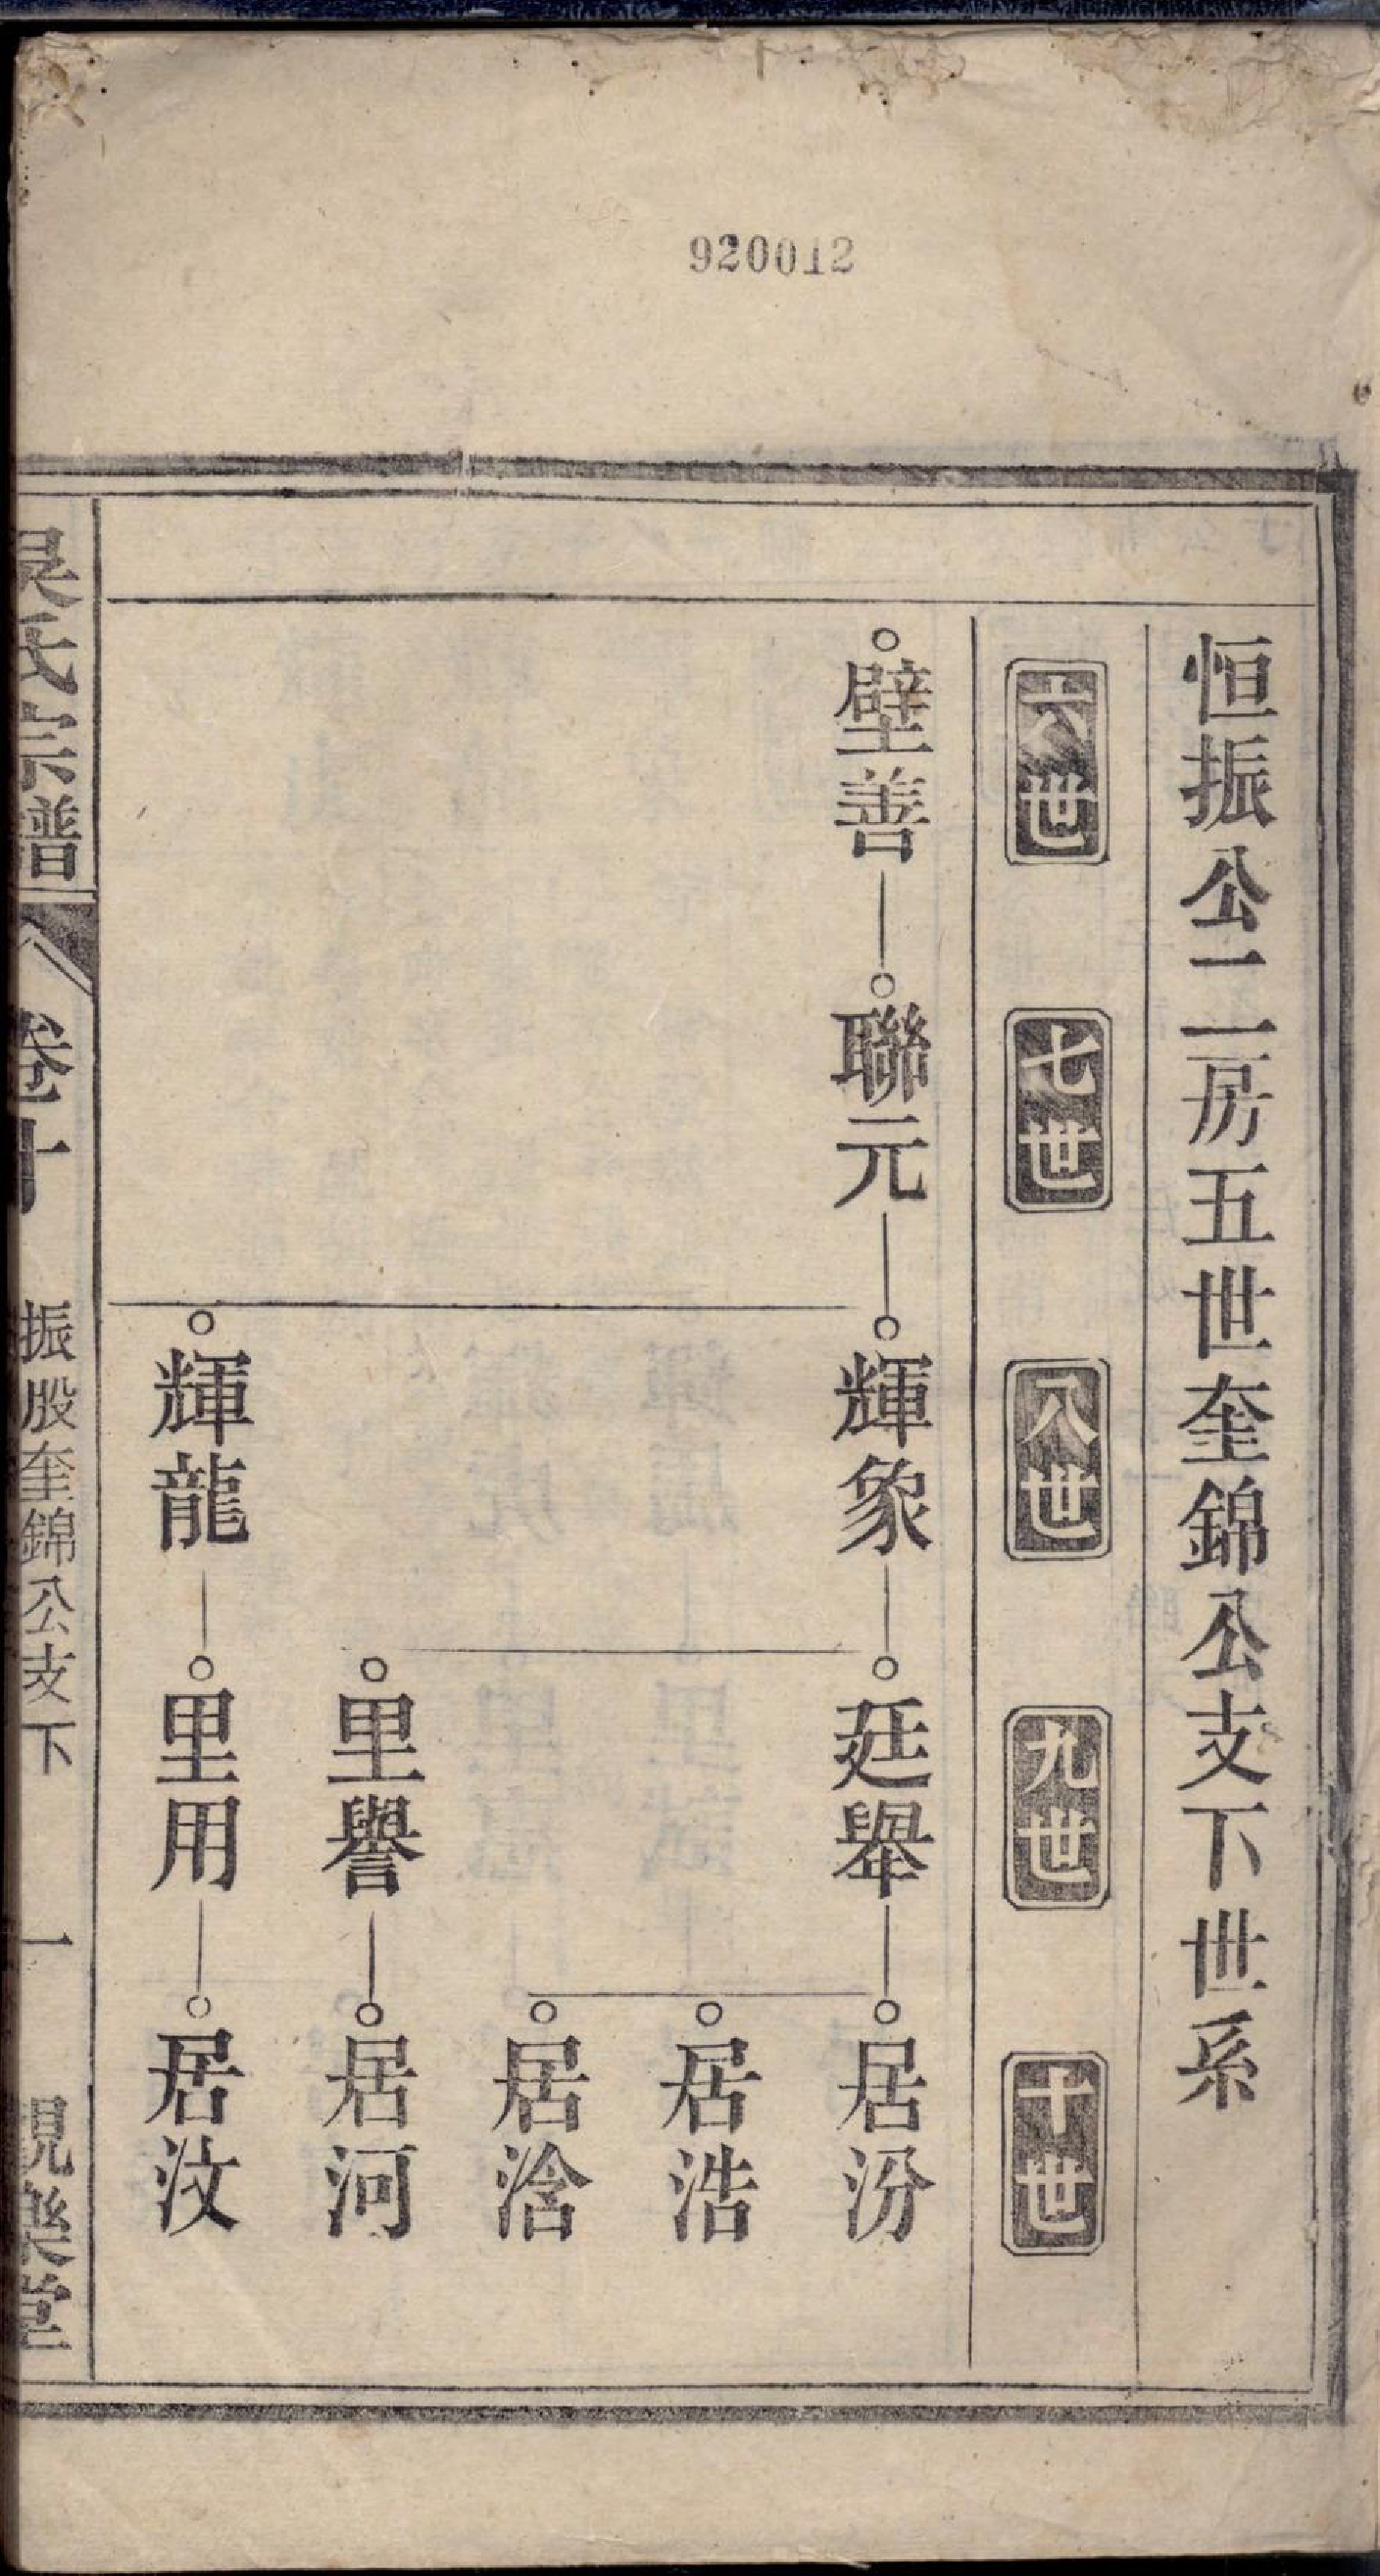 920012
恒振公二房五世奎錦公支下世系
六世
七世
八世
九世
十世
壁善
聯元
輝象
廷舉
居汾
居浩
居浛
里譽
居河
輝龍
里用
居汶
吳氏宗譜
卷十
振股奎錦公支下
一
親樂堂